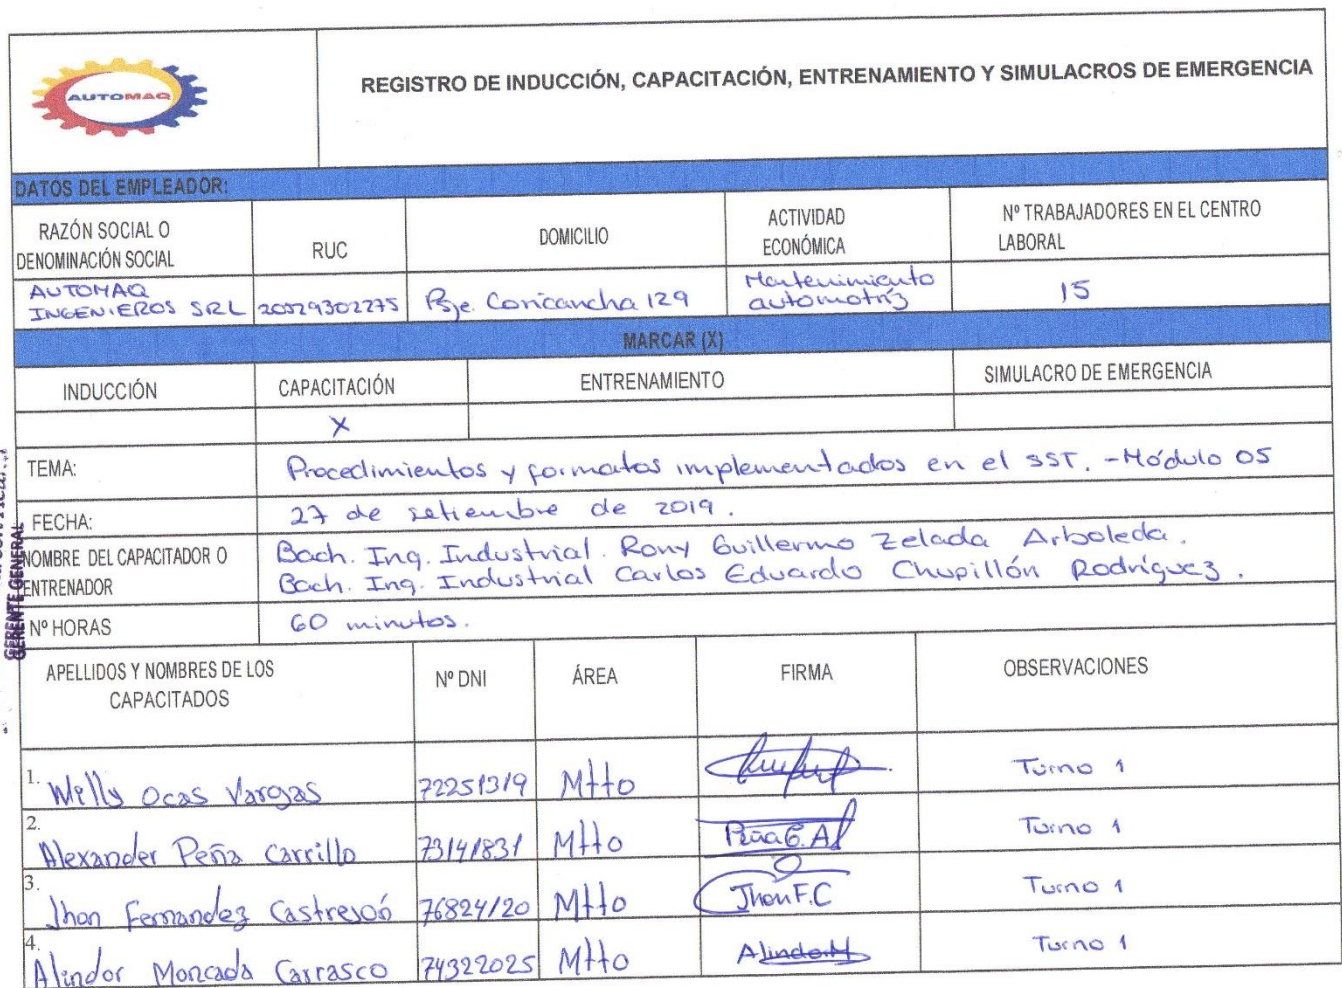 AUTOMAQ
REGISTRO DE INDUCCIÓN, CAPACITACIÓN, ENTRENAMIENTO Y SIMULACROS DE EMERGENCIA
DATOS DEL EMPLEADOR:
RAZÓN SOCIAL O DENOMINACIÓN SOCIAL
RUC
DOMICILIO
ACTIVIDAD ECONÓMICA
Nº TRABAJADORES EN EL CENTRO LABORAL
AUTOMAQ INGENIEROS SRL
20529302275
Psje. Coricancha 129
Mantenimiento automotriz
15
MARCAR (X)
INDUCCIÓN
CAPACITACIÓN
ENTRENAMIENTO
SIMULACRO DE EMERGENCIA
X
TEMA:
Procedimientos y formatos implementados en el SST. - Módulo 05
FECHA:
27 de setiembre de 2019.
NOMBRE DEL CAPACITADOR O ENTRENADOR
Bach. Ing. Industrial. Rony Guillermo Zelada Arboleda.
Bach. Ing. Industrial Carlos Eduardo Chupillón Rodríguez.
Nº HORAS
60 minutos.
GERENTE GENERAL
APELLIDOS Y NOMBRES DE LOS CAPACITADOS
Nº DNI
ÁREA
FIRMA
OBSERVACIONES
1. Willy Ocas Vargas 72251319 Mtto Turno 1
2. Alexander Peña Carrillo 73141831 Mtto Peña C. A Turno 1
3. Jhon Fernandez Castrejón 76824120 Mtto Jhon F.C Turno 1
4. Alindor Moncada Carrasco 74322025 Mtto Alindor M Turno 1